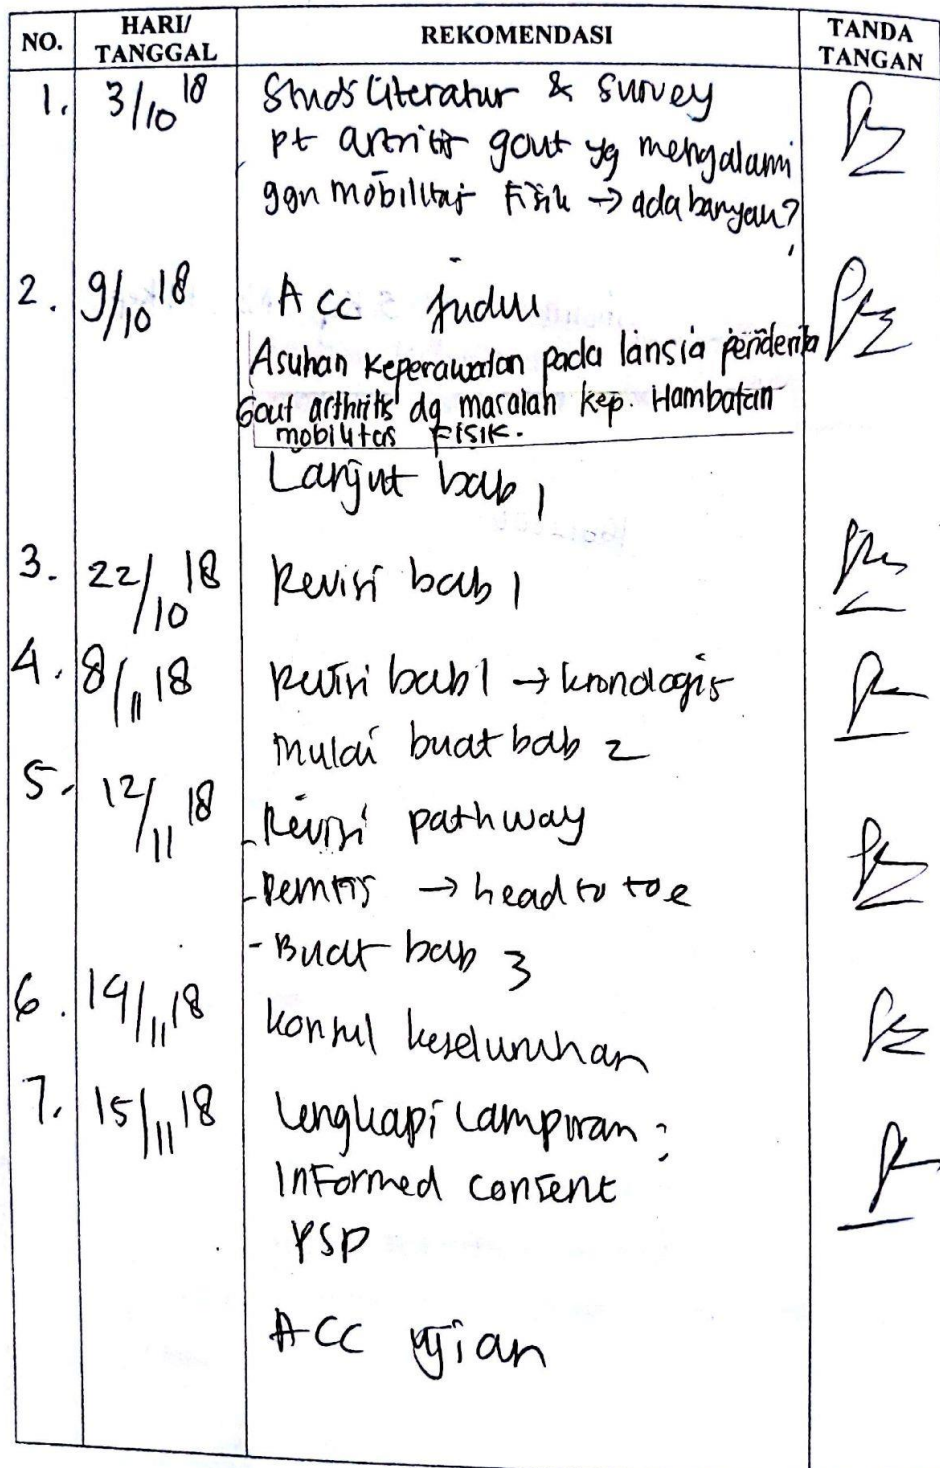 NO. HARI/ TANGGAL REKOMENDASI TANDA TANGAN
1. 3/10 18 Studi literatur & survey
pt artritis gout yg mengalami
ggn mobilitas fisik → ada banyak?
2. 9/10 18 Acc judul
Asuhan Keperawatan pada lansia penderita
Gout arthritis dg masalah kep. Hambatan
mobilitas FISIK.
Lanjut bab 1
3. 22/10 18 Revisi bab 1
4. 8/11 18 Revisi bab 1 → kronologis
Mulai buat bab 2
5. 12/11 18 - Revisi pathway
- Pemfis → head to toe
- Buat bab 3
6. 14/11 18 Konsul keseluruhan
7. 15/11 18 Lengkapi Lampiran :
Informed consent
PSP
ACC ujian